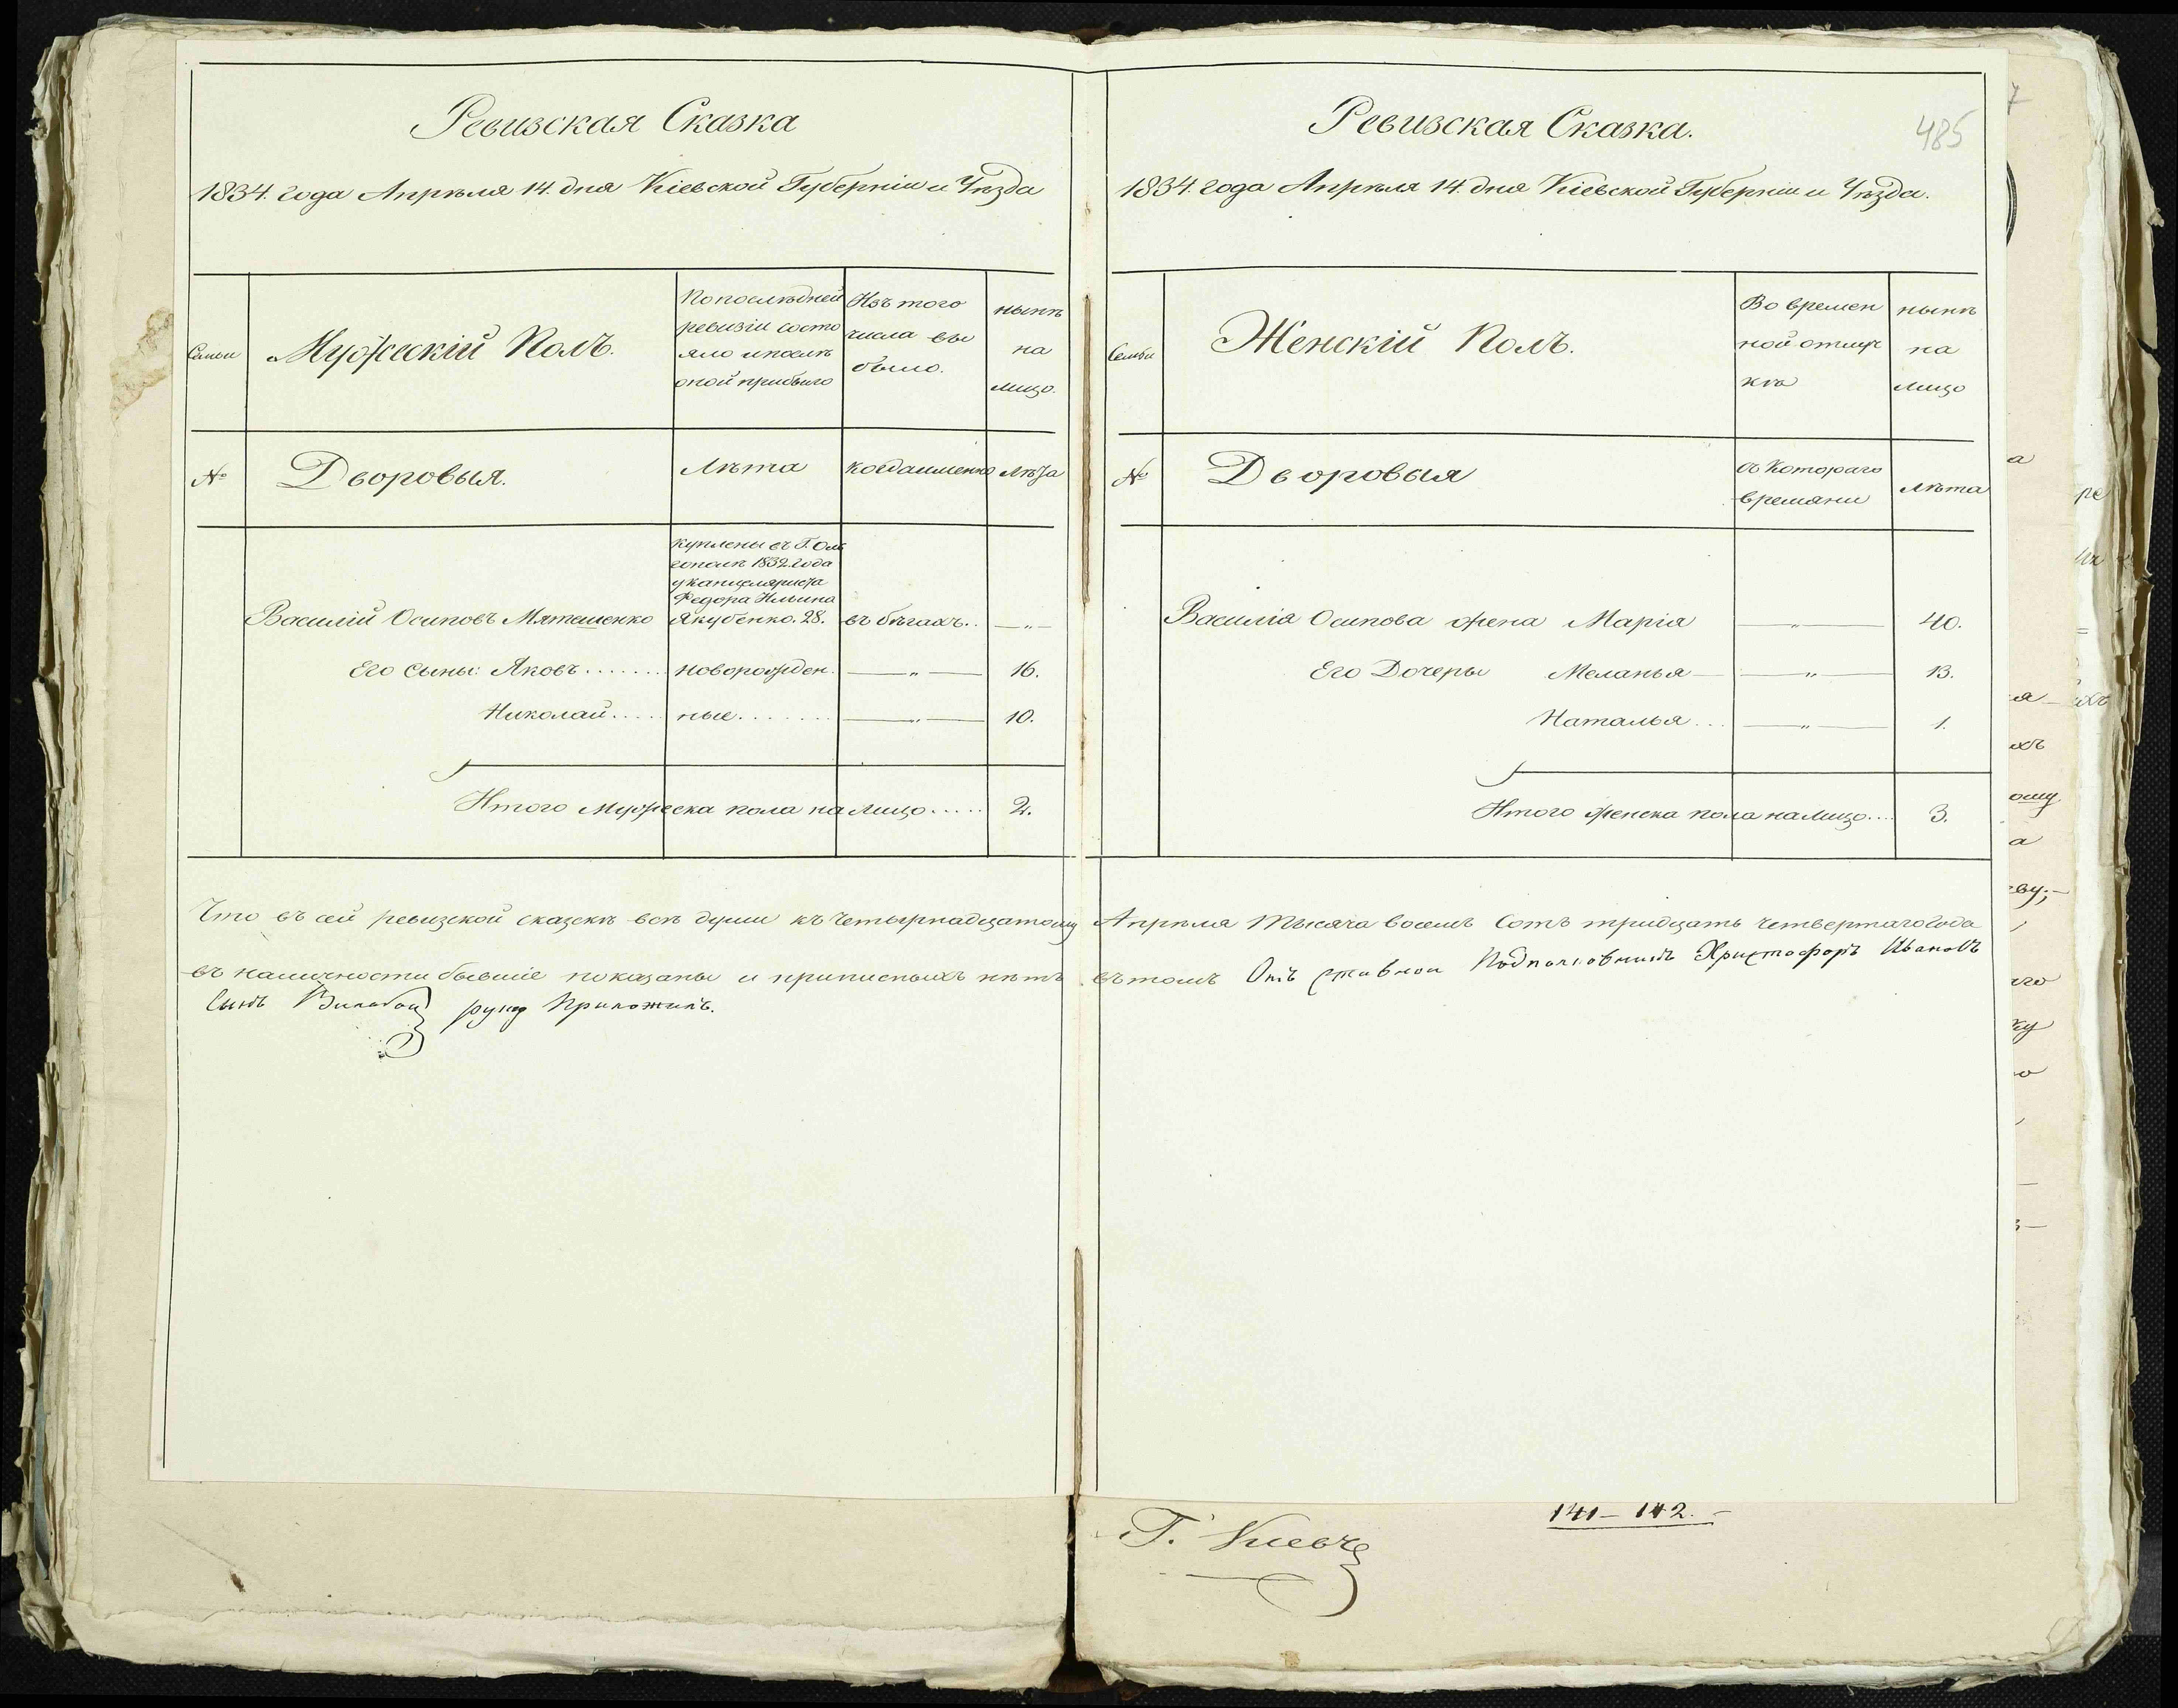 Ревизская Сказка
1834. года Апрѣля 14. дня Кіевской Губерніи и Уѣзда
Семьи
Мужескій Полъ.
По послѣдней
ревизіи состо
яло и послѣ
оной прибыло
Изъ того
числа вы
было.
нынѣ
на
лицо.
№
Дворовыя.
Лѣта
когда именно
Лѣта
куплены въ Г. Оль
гополѣ 1832. года
у канцеляриста
Федора Ильина
Василій Осиповъ Мяташенко Якубенко. 28. въ бѣгахъ.. — „ —
Его Сыны: Яковъ....... новорожден. — „ — 16.
Николай..... ные....... — „ — 10.
Итого Мужеска пола на Лицо..... 2.
Ревизская Сказка.
485
1834. года Апрѣля 14. дня Кіевской Губерніи и Уѣзда.
Семьи
Женскій Полъ.
Во времен
ной отлуч
кѣ
нынѣ
на
лицо
№
Дворовыя
съ Котораго
времяни
Лѣта
Василія Осипова жена Марія — „ — 40.
Его Дочеры Меланья — „ — 13.
Наталья... — „ — 1.
Итого женска пола на Лицо.... 3.
Что въ сей ревизской сказскѣ всѣ души къ Четырнадцатому Апрѣля Тысяча восемь Сотъ тридцать четвертаго Года
въ наличности бывшіе показаны и приписныхъ нѣтъ въ томъ Отъ ставной Подполковникъ Христофоръ Ивановъ
Сынъ руку Приложилъ.
141 – 142. –
Г. Киевъ